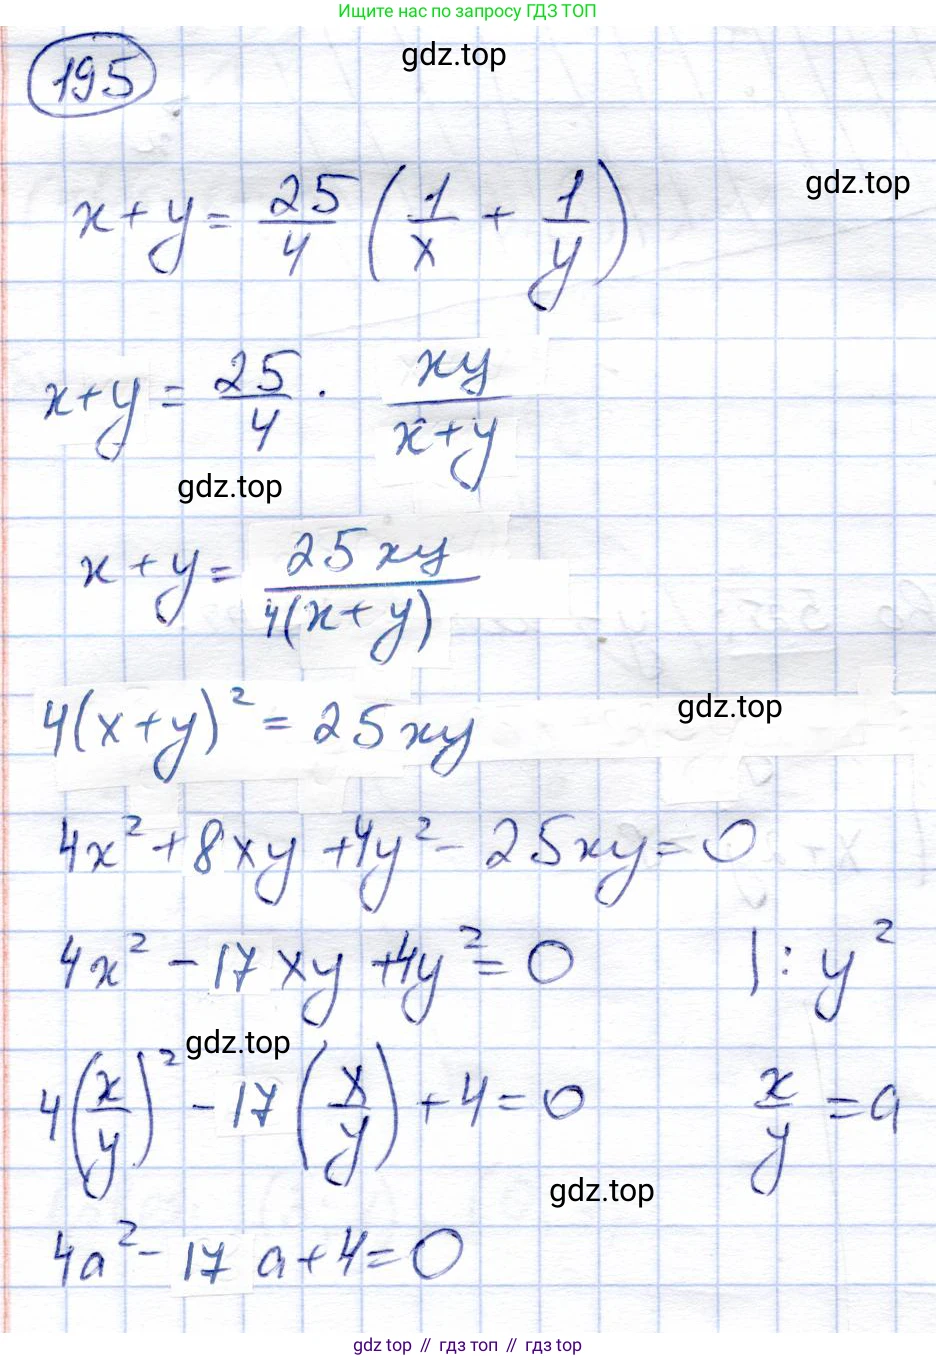 Ищите нас по запросу ГДЗ ТОП
195
gdz.top
x + y = 25/4 (1/x + 1/y)
gdz.top
x + y = 25/4 · xy/(x+y)
gdz.top
x + y = 25xy/(4(x+y))
4(x+y)² = 25xy
gdz.top
4x² + 8xy + 4y² - 25xy = 0
4x² - 17xy + 4y² = 0 |: y²
gdz.top
4(x/y)² - 17(x/y) + 4 = 0 x/y = a
gdz.top
4a² - 17a + 4 = 0
gdz top // гдз топ // gdz.top